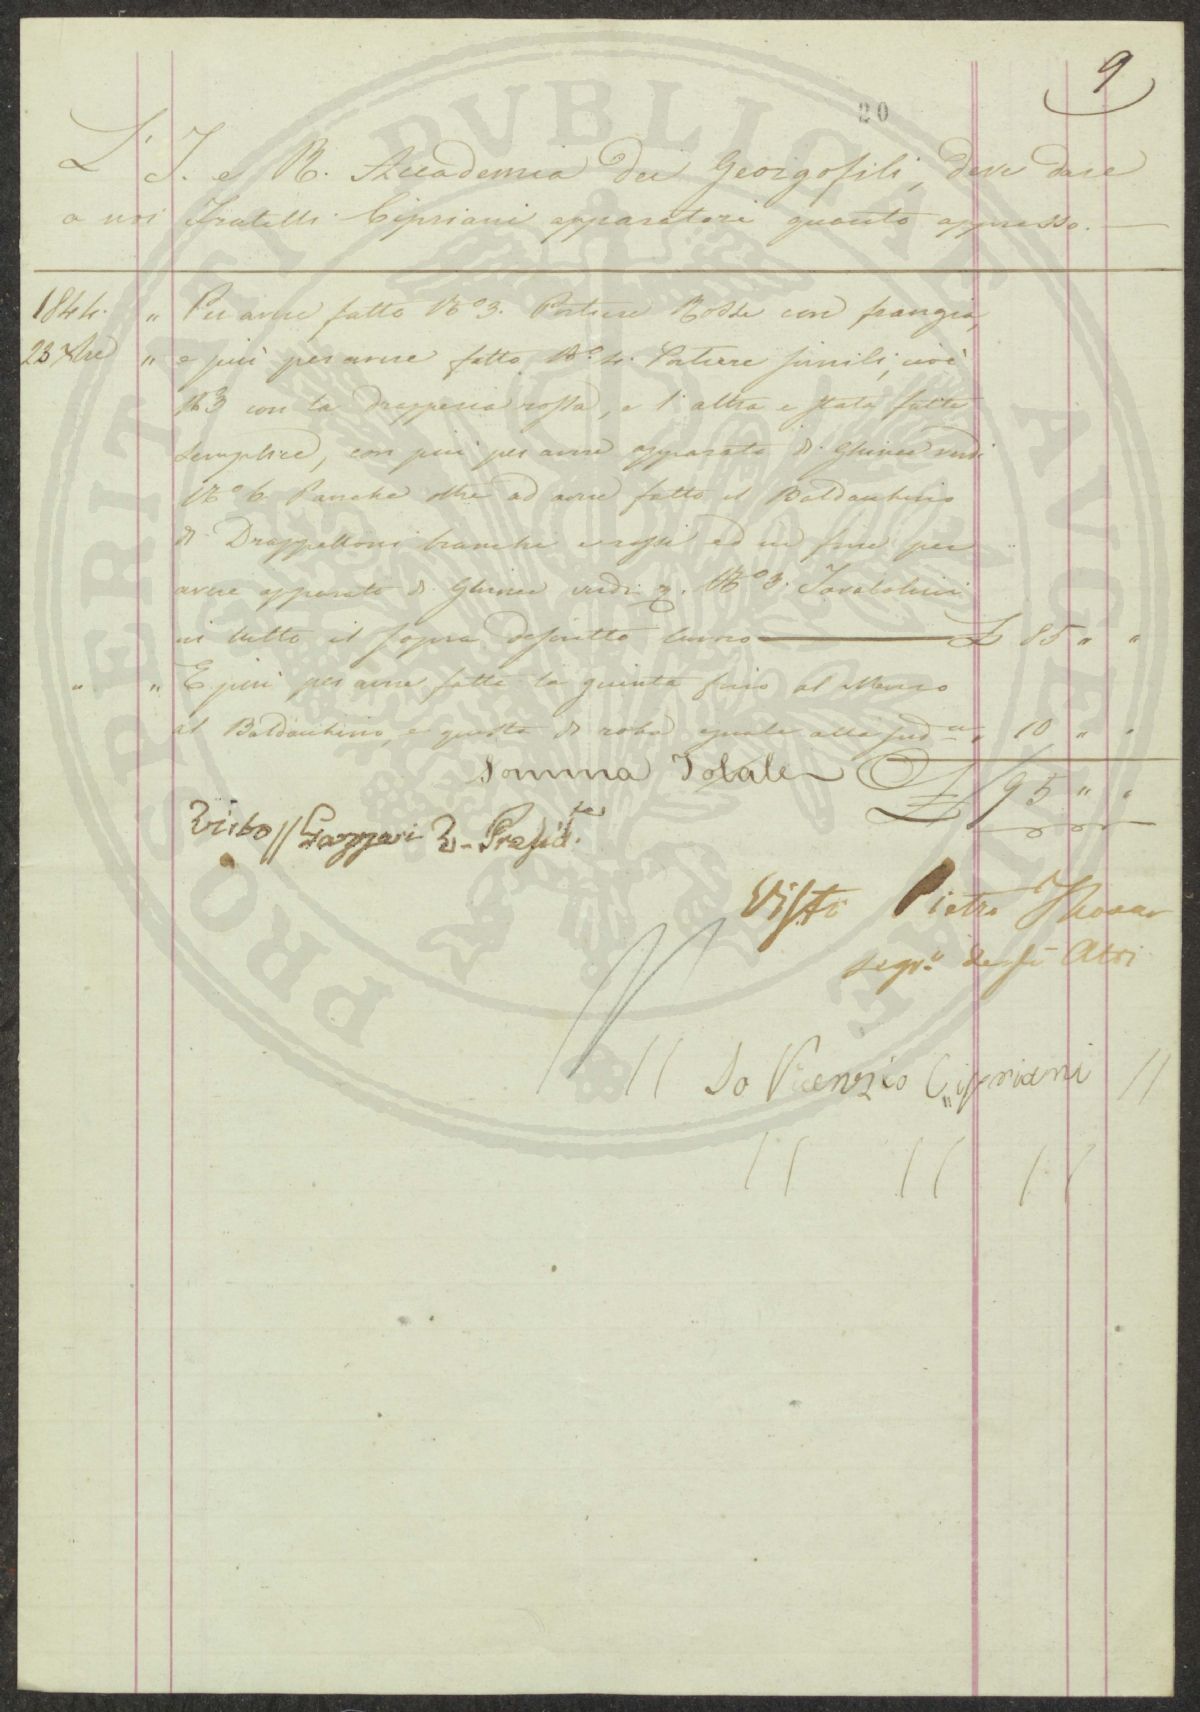 9
20
L' I. e R. Accademia dei Georgofili, deve dare
a noi Fratelli Cipriani apparatori quanto appresso.
1844. " Per avere fatto N.o 3. Portiere Rosse con frangia,
23 Xbre " e più per avere fatto N.o 4. Portiere simili, cioè
N.o 3 con la drapperia rossa, e l'altra e stata fatta
semplice, con più per avere apparato di Ghinee verdi
N.o 6 Panche oltre ad avere fatto il Baldacchino
di Drappelloni bianchi e rossi ed in fine per
avere apparato di Ghinee verdi N.o 3. Tavololini
in tutto il sopra descritto £ 85 " "
" " E più per avere fatto la quinta fino al
al Baldacchino, e questa di roba eguale alla sud.a " 10 " "
Somma Totale £ 95 " "
Visto // Gazzari V. Presid.te
Visto Pietro
segr.o degli Atti
// Io Vicenzio Cipriani //
// // //
PROSPERITATI PVBLICAE AVGENDAE